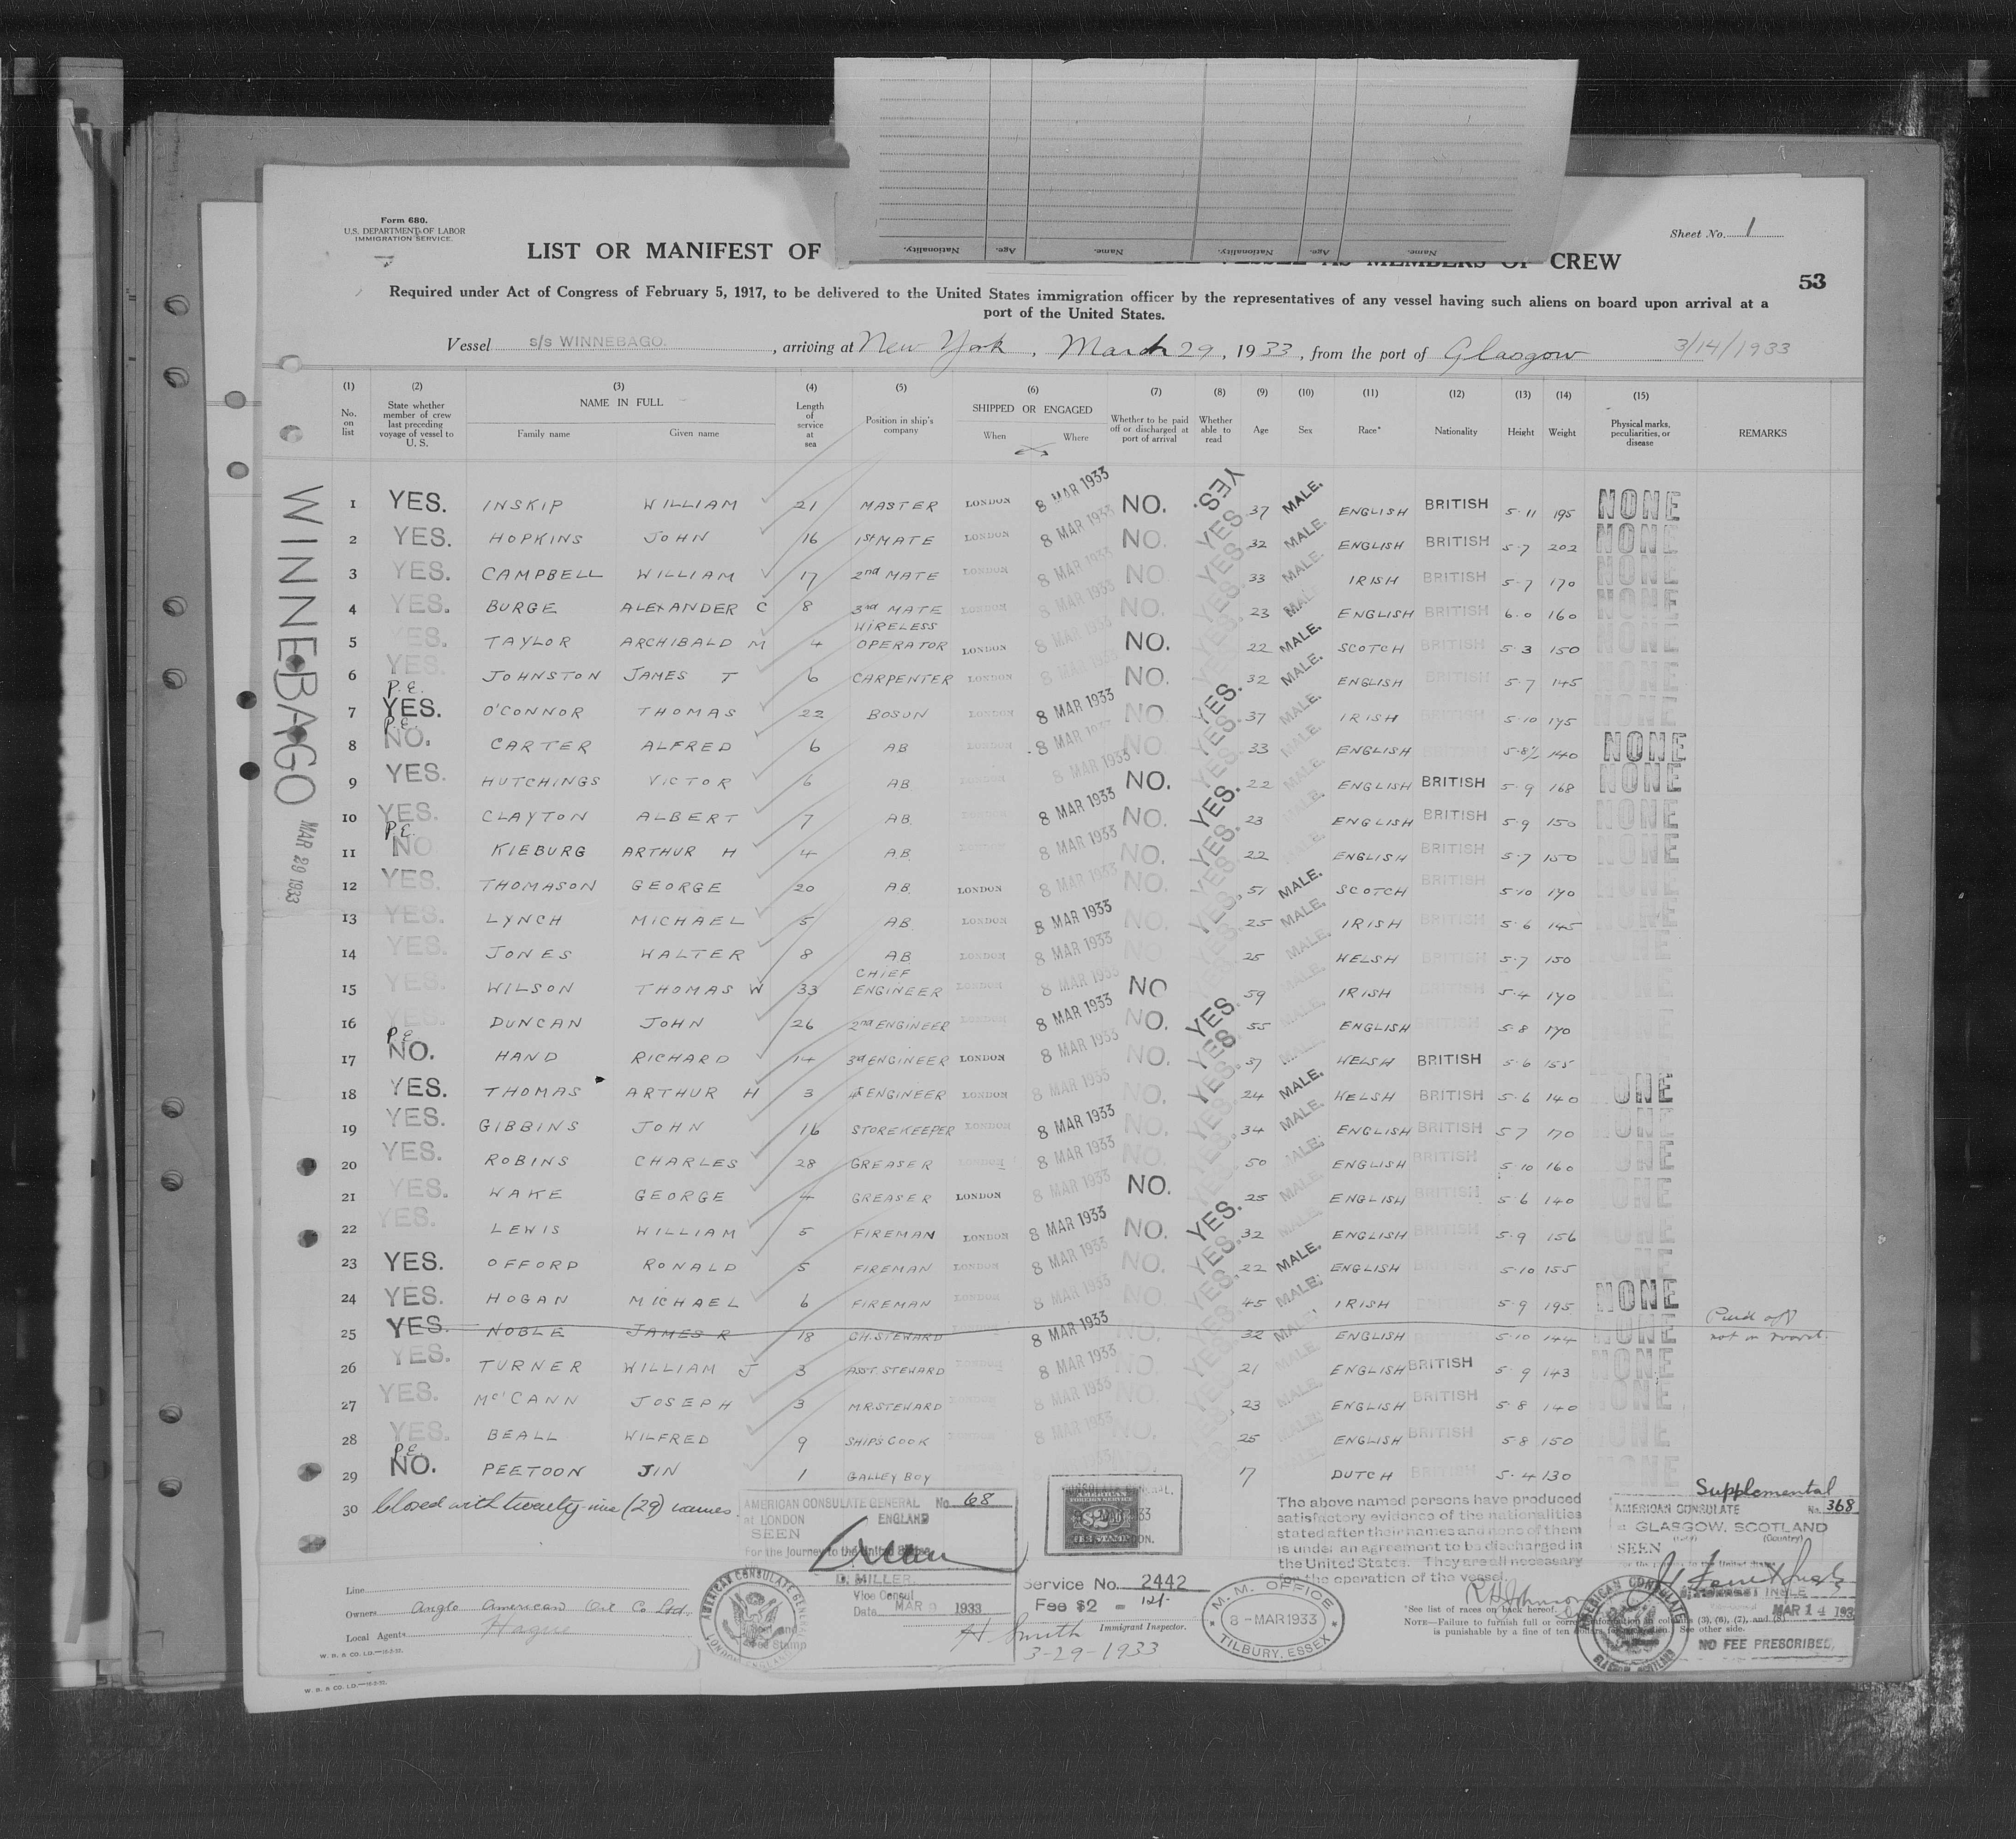 Nationality. Age. Name. Nationality. Age. Name.
Form 680.
U.S. DEPARTMENT OF LABOR
IMMIGRATION SERVICE.
Sheet No. 1
LIST OR MANIFEST OF VESSEL AS MEMBERS OF CREW
53
Required under Act of Congress of February 5, 1917, to be delivered to the United States immigration officer by the representatives of any vessel having such aliens on board upon arrival at a
port of the United States.
Vessel s/s WINNEBAGO. , arriving at New York , March 29 , 1933 , from the port of Glasgow 3/14/1933
(1) No. on list
(2) State whether member of crew last preceding voyage of vessel to U.S.
(3) NAME IN FULL Family name Given name
(4) Length of service at sea
(5) Position in ship's company
(6) SHIPPED OR ENGAGED When Where
(7) Whether to be paid off or discharged at port of arrival
(8) Whether able to read
(9) Age
(10) Sex
(11) Race*
(12) Nationality
(13) Height
(14) Weight
(15) Physical marks, peculiarities, or disease
REMARKS
WINNEBAGO MAR 29 1933
1 YES. INSKIP WILLIAM 21 MASTER LONDON 8 MAR 1933 NO. YES. 37 MALE. ENGLISH BRITISH 5-11 195 NONE
2 YES. HOPKINS JOHN 16 1st MATE LONDON 8 MAR 1933 NO. YES. 32 MALE. ENGLISH BRITISH 5-7 202 NONE
3 YES. CAMPBELL WILLIAM 17 2nd MATE LONDON 8 MAR 1933 NO YES. 33 MALE. IRISH BRITISH 5-7 170 NONE
4 YES. BURGE ALEXANDER C 8 3rd MATE LONDON 8 MAR 1933 NO. YES. 23 MALE ENGLISH BRITISH 6-0 160 NONE
5 YES. TAYLOR ARCHIBALD M 4 WIRELESS OPERATOR LONDON 8 MAR 1933 NO. YES. 22 MALE. SCOTCH BRITISH 5-3 150 NONE
6 YES. JOHNSTON JAMES T 6 CARPENTER LONDON 8 MAR 1933 NO. YES. 32 MALE. ENGLISH BRITISH 5-7 145 NONE
7 P.E. YES. O'CONNOR THOMAS 22 BOSUN LONDON 8 MAR 1933 NO YES. 37 MALE. IRISH BRITISH 5-10 175 NONE
8 P.E. NO. CARTER ALFRED 6 AB LONDON 8 MAR 1933 NO. YES. 33 MALE. ENGLISH BRITISH 5-8½ 140 NONE
9 YES. HUTCHINGS VICTOR 6 AB 8 MAR 1933 NO. YES. 22 MALE. ENGLISH BRITISH 5-9 168 NONE
10 YES. CLAYTON ALBERT 7 AB. 8 MAR 1933 NO. YES. 23 MALE. ENGLISH BRITISH 5-9 150 NONE
11 P.E. NO KIEBURG ARTHUR H 4 A.B. 8 MAR 1933 NO. YES. 22 MALE. ENGLISH BRITISH 5-7 150 NONE
12 YES. THOMASON GEORGE 20 AB. LONDON 8 MAR 1933 NO. YES. 51 MALE. SCOTCH BRITISH 5-10 170 NONE
13 YES. LYNCH MICHAEL 5 AB. LONDON 8 MAR 1933 NO. YES. 25 MALE. IRISH BRITISH 5-6 145 NONE
14 YES. JONES WALTER 8 AB LONDON 8 MAR 1933 NO YES. 25 MALE. WELSH BRITISH 5-7 150 NONE
15 YES. WILSON THOMAS W 33 CHIEF ENGINEER LONDON 8 MAR 1933 NO YES. 59 MALE. IRISH BRITISH 5-4 170 NONE
16 YES. DUNCAN JOHN 26 2nd ENGINEER LONDON 8 MAR 1933 NO. YES. 55 MALE. ENGLISH BRITISH 5-8 170
17 P.E. NO. HAND RICHARD 14 3rd ENGINEER LONDON 8 MAR 1933 NO. YES 37 MALE. WELSH BRITISH 5-6 155
18 YES. THOMAS ARTHUR H 3 4th ENGINEER LONDON 8 MAR 1933 NO. YES. 24 MALE. WELSH BRITISH 5-6 140 ONE
19 YES. GIBBINS JOHN 16 STOREKEEPER LONDON 8 MAR 1933 NO. YES. 34 MALE. ENGLISH BRITISH 5 7 170 ONE
20 YES. ROBINS CHARLES 28 GREASER LONDON 8 MAR 1933 NO. YES. 50 MALE. ENGLISH BRITISH 5-10 160 ONE
21 YES. WAKE GEORGE 4 GREASER LONDON 8 MAR 1933 NO. YES. 25 MALE. ENGLISH BRITISH 5-6 140 ONE
22 YES. LEWIS WILLIAM 5 FIREMAN LONDON 8 MAR 1933 NO. YES. 32 MALE. ENGLISH BRITISH 5-9 156 ONE
23 YES. OFFORD RONALD 5 FIREMAN LONDON 8 MAR 1933 NO. YES. 22 MALE. ENGLISH BRITISH 5-10 155 ONE
24 YES. HOGAN MICHAEL 6 FIREMAN LONDON 8 MAR 1933 NO. YES. 45 MALE. IRISH 5-9 195 NONE
25 YES. NOBLE JAMES R 18 CH. STEWARD 8 MAR 1933 NO. YES. 32 MALE. ENGLISH 5-10 144 NONE Paid off not on board.
26 YES. TURNER WILLIAM J 3 ASST. STEWARD LONDON 8 MAR 1933 NO. YES. 21 MALE. ENGLISH BRITISH 5-9 143 NONE
27 YES. McCANN JOSEPH 3 M.R. STEWARD LONDON 8 MAR 1933 NO. YES. 23 MALE. ENGLISH BRITISH 5-8 140 NONE
28 YES. BEALL WILFRED 9 SHIP'S COOK 8 MAR 1933 NO. 25 MALE. ENGLISH BRITISH 5-8 150 NONE
29 P.E. NO. PEETOON JIN 1 GALLEY BOY 17 DUTCH BRITISH 5-4 130 NONE
30 Closed with twenty-nine (29) names.
AMERICAN CONSULATE GENERAL No. 68
at LONDON ENGLAND
SEEN
For the journey to the United States
D. MILLER
Vice Consul
Date MAR 9 1933
AMERICAN CONSULATE GENERAL LONDON, ENGLAND
AMERICAN FOREIGN SERVICE $2
Service No. 2442
Fee $2 =
H Smith Immigrant Inspector.
3-29-1933
M.M. OFFICE
8 - MAR 1933
TILBURY, ESSEX
The above named persons have produced
satisfactory evidence of the nationalities
stated after their names and none of them
is under an agreement to be discharged in
the United States. They are all necessary
for the operation of the vessel.
R H Johnson
Supplemental
AMERICAN CONSULATE No. 368
at GLASGOW, SCOTLAND
(City) (Country)
SEEN
INGLE
MAR 14 193
NO FEE PRESCRIBED.
AMERICAN CONSULATE GLASGOW, SCOTLAND
Line
Owners Anglo American Oil Co Ltd.
Local Agents Hague
*See list of races on back hereof.
NOTE—Failure to furnish full or correct information in columns (3), (6), (7), and (8)
is punishable by a fine of ten dollars for each alien. See other side.
W. B. & CO. LD.
W. B. & CO. LD.